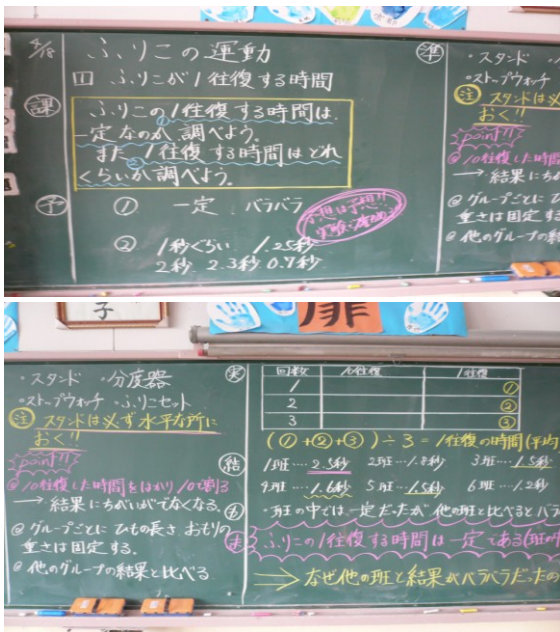 5/18
ふりこの運動
1 ふりこが1往復する時間
課
ふりこの1往復する時間は、
①
一定なのか、調べよう。
また、1往復する時間はどれ
②
くらいか調べよう。
予
① 一定 バラバラ
予想は予想!!
② 1秒くらい 1.25秒
2秒 2.3秒 0.7秒
準
・スタンド
・ストップウォッチ
注 スタンドは必
おく!!
point!!
@ 10往復した時間
→ 結果にちが
@ グループごとに ひ
重さは固定す
@ 他のグループの結
子
扉
・スタンド ・分度器
・ストップウォッチ ・ふりこセット
注 スタンドは必ず水平な所に
おく!!
point!!
@ 10往復した時間をはかり 10で割る
→ 結果にちがいがでなくなる。
@ グループごとに ひもの長さ、おもりの
重さは固定する。
@ 他のグループの結果と比べる。
実
回数 10往復 1往復
1 ①
2 ②
3 ③
(①+②+③)÷3=1往復の時間(平均
結
1班…2.5秒 2班…1.8秒 3班…1.5秒
4班…1.6秒 5班…1.5秒 6班…1.2秒
・班の中では一定だったが、他の班と比べるとバラ
ま
ふりこの1往復する時間は一定である(班の中
⇒ なぜ他の班と結果がバラバラだったの